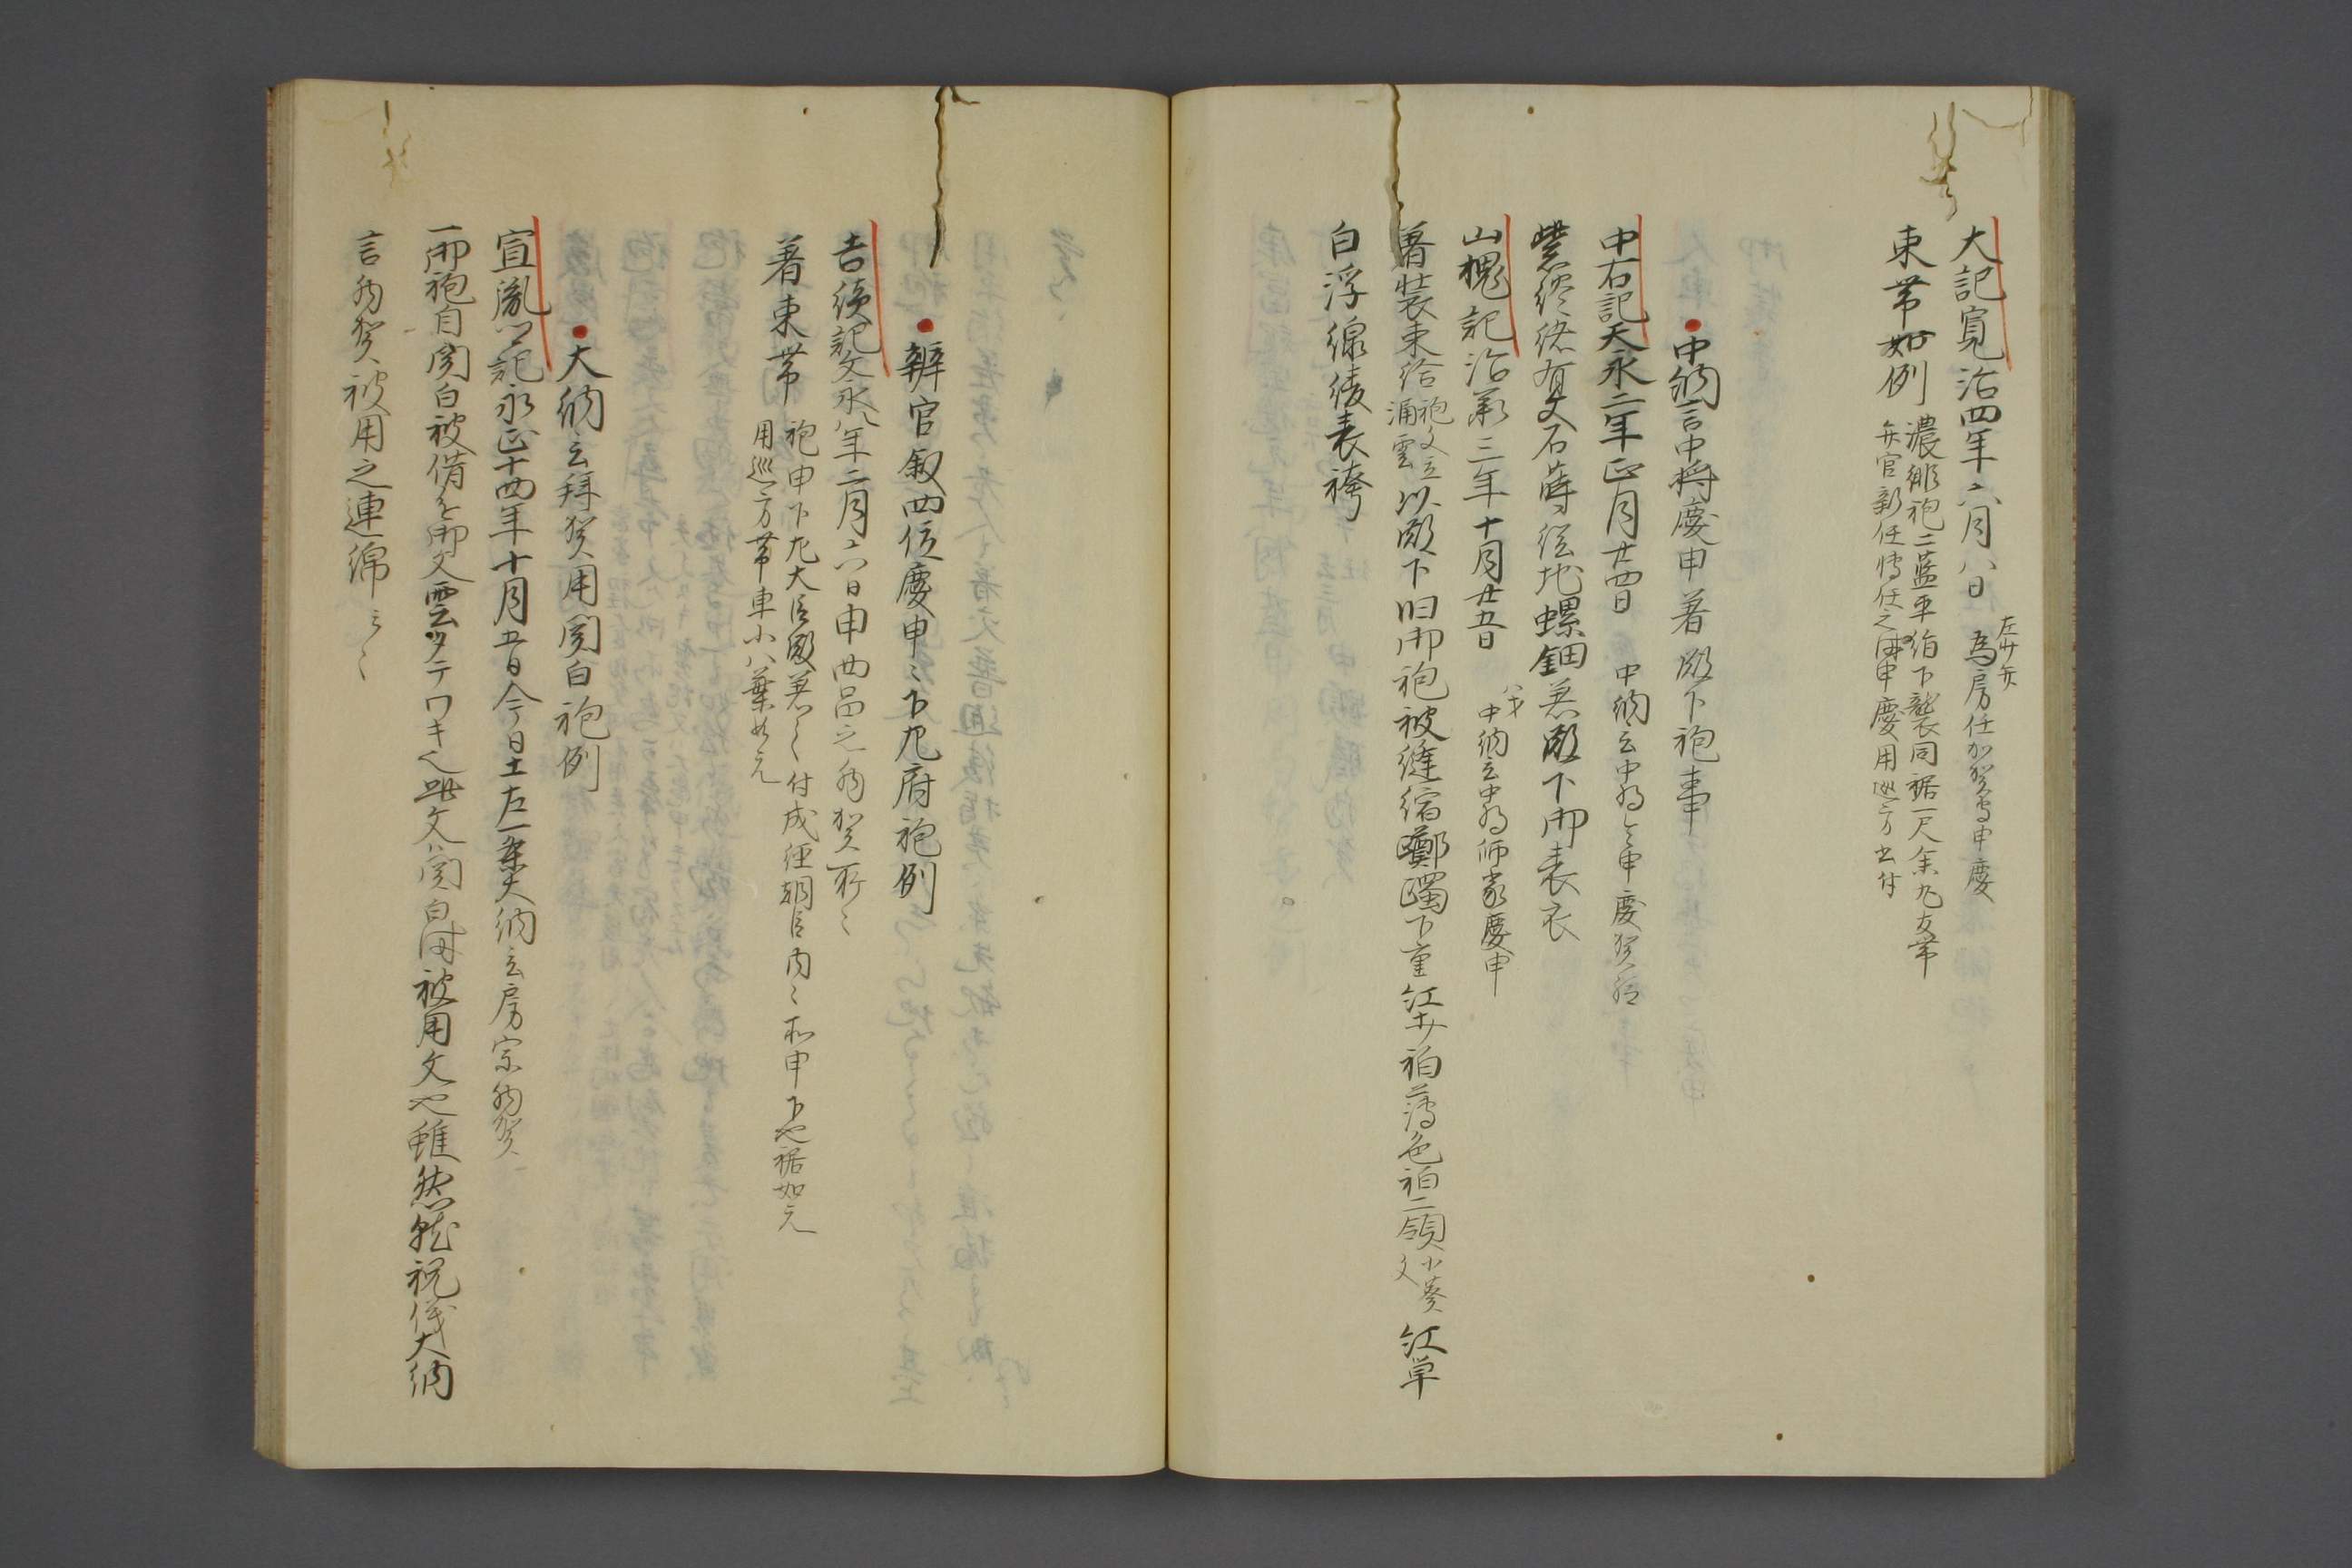 大記寛治四年六月八日 左少弁為房任加賀守申慶
束帯如例 濃緋袍二藍平絹下襲同裾一尺余丸友帯
弁官新任博任之時申慶用巡方出付
●中納言中将慶申著殿下袍事
中右記天永二年正月廿四日 中納言中将令申慶賀給
紫綬緒有文石蒔絵地螺鈿若殿下御表衣
山槐記治承三年十月廿五日 八才中納言中将師家慶申
著装束給 袍文立涌雲 以殿下旧御袍被縫縮躑躅下重紅打衵薄色衵二領 小葵文 紅単
白浮線綾表袴
●辨官叙四位慶申申下九府袍例
吉続記文永八年二月六日申四品之拝賀所々
著束帯 袍申下九大臣殿若々付成経朝臣内々所申下也裾如元
用巡方帯車小八葉如元
●大納言拝賀用関白袍例
宣胤卿記永正十四年十月五日今日土左一条大納言房家拝賀
御袍自関白被借を御文雲タテワキ也此文ハ関白時被用文也雖然就祝儀大納
言拝賀被用之連綿云々